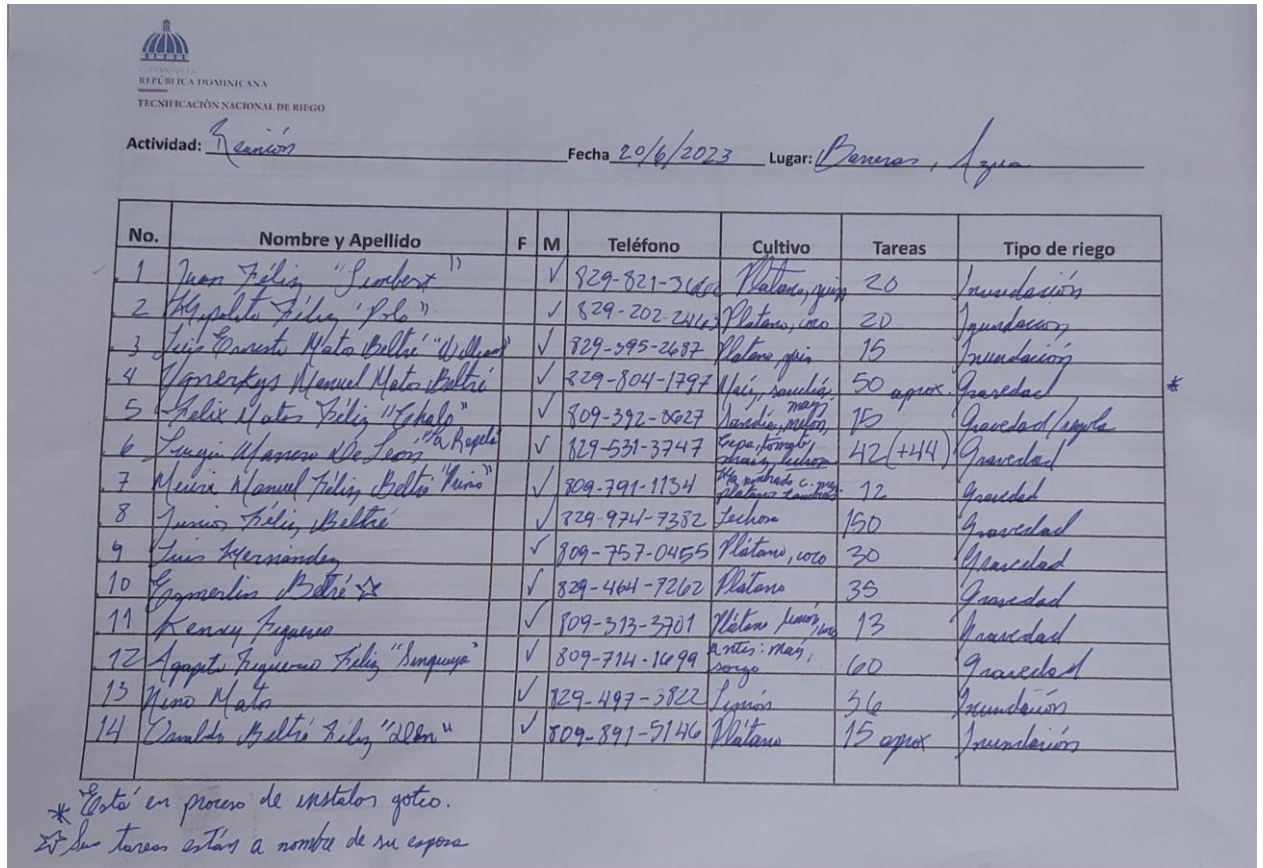 REPÚBLICA DOMINICANA
TECNIFICACIÓN NACIONAL DE RIEGO
Actividad: Reunión Fecha 20/6/2023 Lugar: Barreras, Azua
No. Nombre y Apellido F M Teléfono Cultivo Tareas Tipo de riego
1 Juan Féliz "Limbert" ✓ 829-821- Plátano, 20 Inundación
2 Hipolito Féliz "Polo" ✓ 829-202-2463 Platano, coco 20 Inundacion
3 Luis Ernesto Matos Beltré "William" ✓ 829-595-2687 Platano, 15 Inundación
4 Manuel Matos Beltré ✓ 829-804-1797 Maíz, sandía, 50 aprox. Gravedad *
5 Felix Matos Féliz "Chalo" ✓ 809-392-8627 Sandía, melón, maíz 15 Gravedad/regola
6 De Leon ✓ 829-531-3747 tomate, maíz, lechosa 42 (+44) Gravedad
7 Manuel Féliz Beltré "Primo" ✓ 809-791-1134 platano 12 Gravedad
8 Junior Féliz Beltré ✓ 829-974-7382 Lechosa 150 Gravedad
9 Luis Hernández ✓ 809-757-0455 Plátano, coco 30 Gravedad
10 Esmerlin Beltré ☆ ✓ 829-464-7262 Platano 35 Gravedad
11 Kenny Figuereo ✓ 809-313-3701 Plátano limón, coco 13 Gravedad
12 Agapito Figuereo Féliz ✓ 809-714-1699 antes: maíz, sorgo 60 Gravedad
13 Nino Matos ✓ 829-497-3822 Limón 36 Inundación
14 Osvaldo Beltré Féliz ✓ 809-891-5146 Plátano 15 aprox Inundación
* Está en proceso de instalar goteo.
☆ Sus tareas están a nombre de su esposa